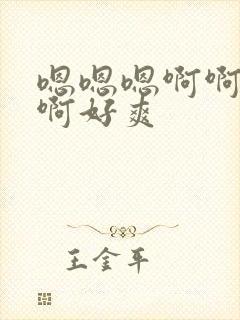 嗯嗯嗯啊啊
啊好爽
王金平